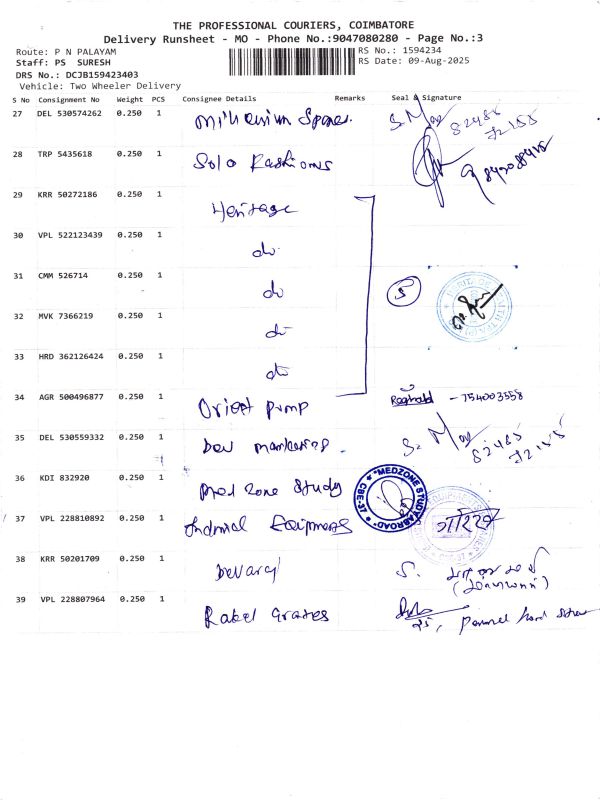 THE PROFESSIONAL COURIERS, COIMBATORE
Delivery Runsheet - MO - Phone No.:9047080280 - Page No.:3
Route: P N PALAYAM
RS No.: 1594234
Staff: PS SURESH
RS Date: 09-Aug-2025
DRS No.: DCJB159423403
Vehicle: Two Wheeler Delivery
S No Consignment No Weight PCS Consignee Details Remarks Seal & Signature
27 DEL 530574262 0.250 1 Millenium Spares. S. 82485 72155
28 TRP 5435618 0.250 1 Solo Fashions
29 KRR 50272186 0.250 1 Heritage
30 VPL 522123439 0.250 1 do
31 CMM 526714 0.250 1 do 5
32 MVK 7366219 0.250 1 do
33 HRD 362126424 0.250 1 do
34 AGR 500496877 0.250 1 Orient pump - 754003558
35 DEL 530559332 0.250 1 Dev marketing. S. 82485 72155
36 KDI 832920 0.250 1 Med Zone Study
"MEDZONE STUDY ABROAD" CBE-37
37 VPL 228810892 0.250 1 Equipments
38 KRR 50201709 0.250 1 Devaraj
39 VPL 228807964 0.250 1